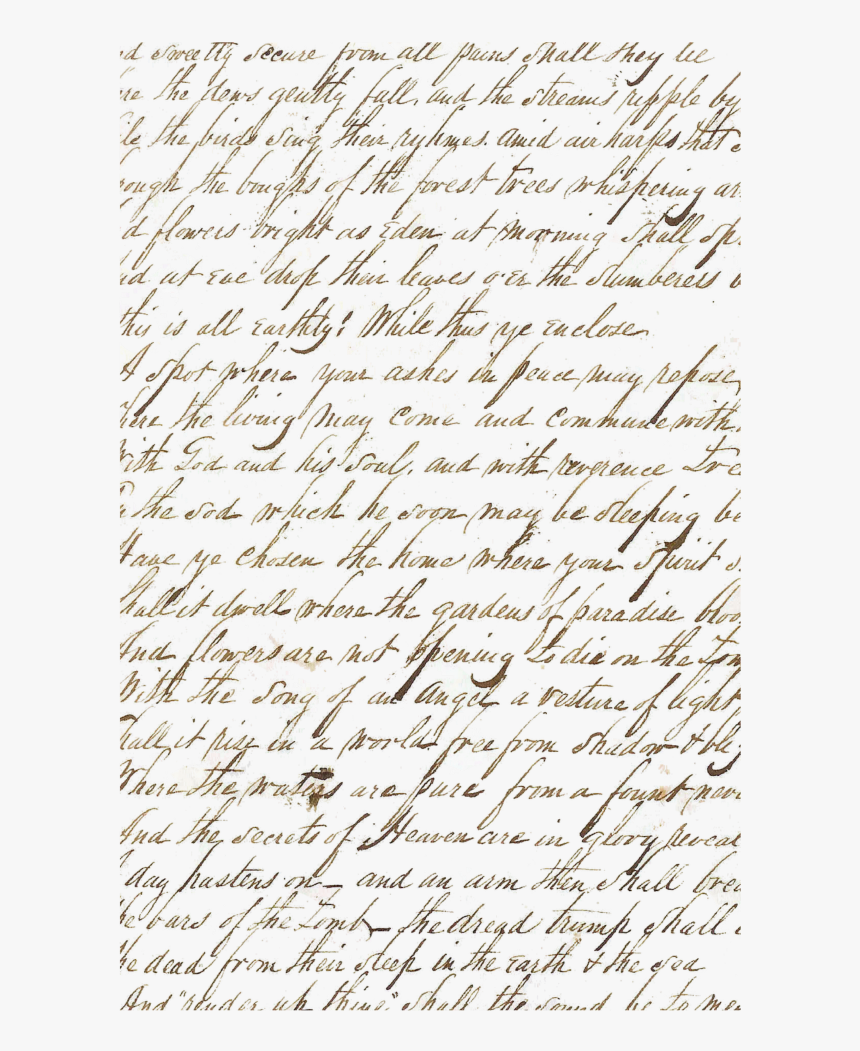 d sweetly secure from all pains shall they be
re the dews gently fall, and the streams ripple by
le the birds sing their ryhmes. amid air harps that
ough the boughs of the forest trees whispering ar
d flowers bright as Eden at morning shall sp
nd at eve drop their leaves o'er the slumberers
this is all earthly! While thus ye enclose
A spot where your ashes in peace may repose,
here the living may come and commune with
With God and his soul, and with reverence tre
the sod which he soon may be sleeping be
Have ye chosen the home where your spirit s
Shall it dwell where the gardens of paradise bloo
And flowers are not opening to die on the tom
With the song of an angel a vesture of light,
hall it rise in a world free from shadow & bli
Where the waters are pure from a fount nev
And the secrets of Heaven are in glory reveal
day hastens on – and an arm then shall brea
he bars of the tomb – the dread trump shall
he dead from their sleep in the earth & the sea
And "render up thine" shall the sound be to me